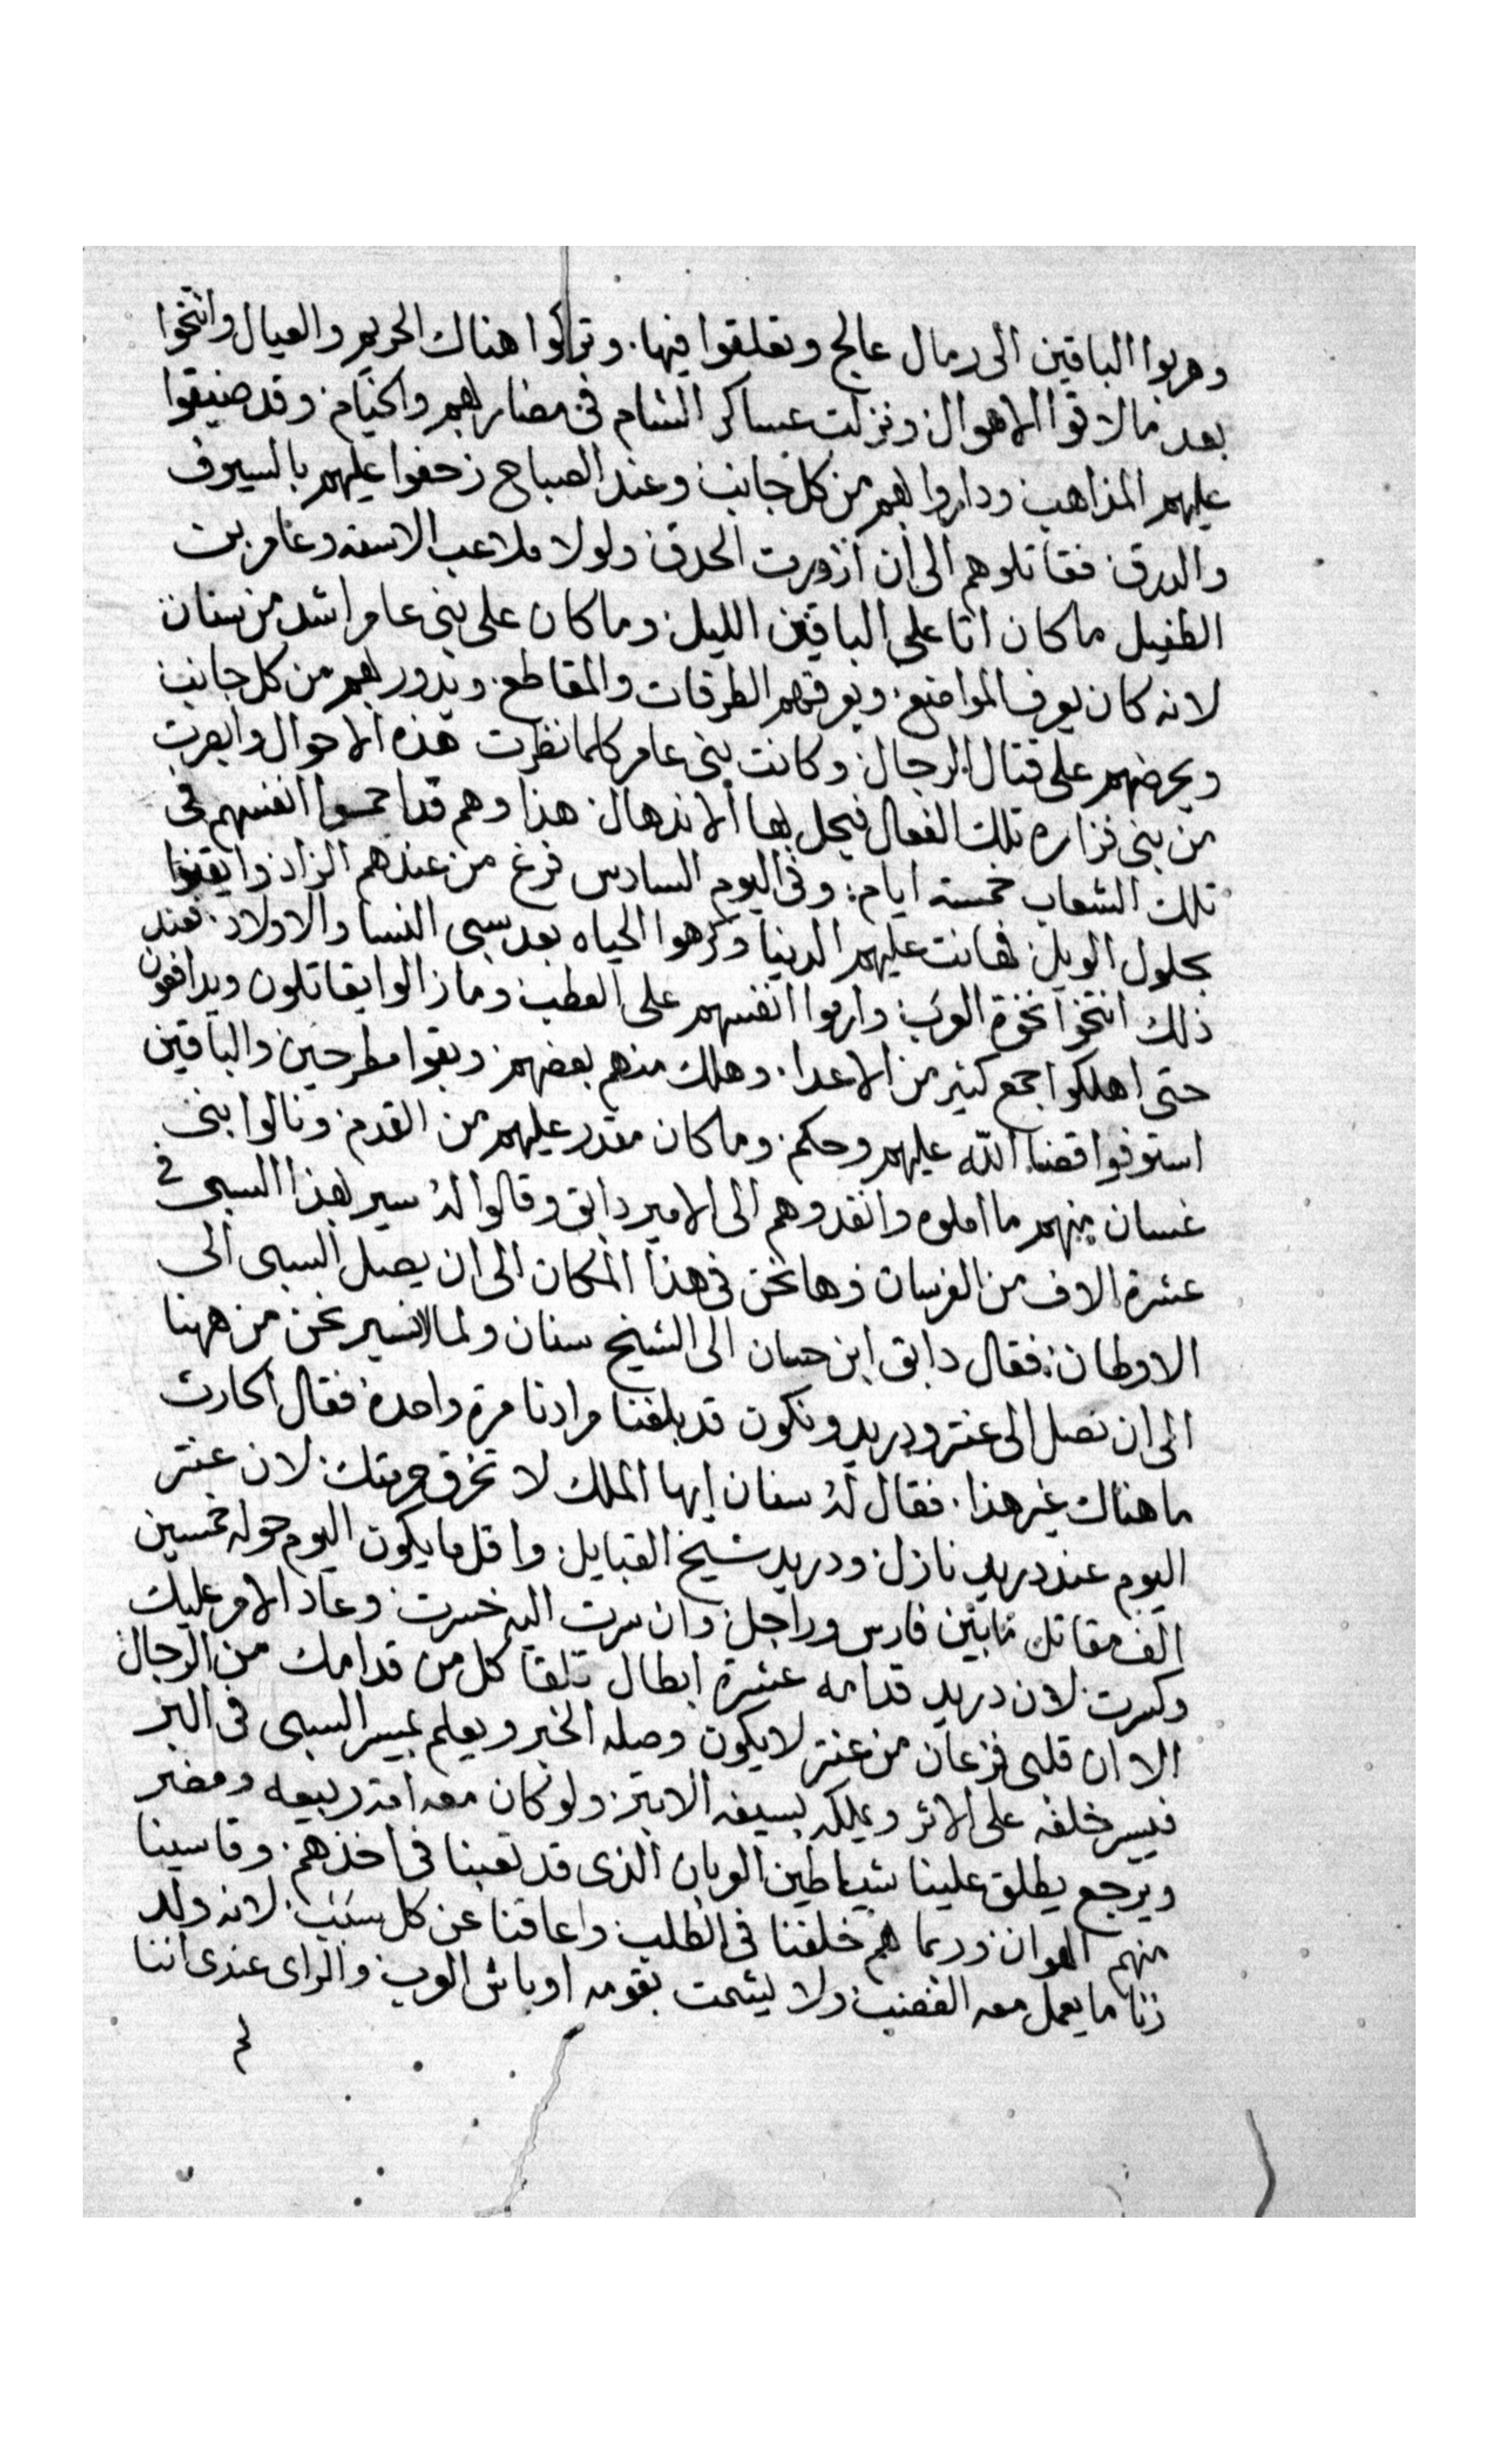 وهربوا الباقين الى رمال عالج وتعلقوا فيها. وتراكوا هناك الحريم والعيال وانتخوا
بعد ما لاقوا الاهوال ونزلت عساكر الشام في مضاربهم والخيام. وقد ضيقوا
عليهم المذاهب وداروا بهم من كل جانب وعند الصباح زحفوا عليهم بالسيوف
والدرق. فقاتلوهم الى ان ازورت الحدق. ولولا ملاعب الاسنه وعامر بن
الطفيل ما كان اتا على الباقين الليل. وما كان على بني عامر اشد من سنان
لانه كان يعرف المواضع. ويعرفهم الطرقات والمقاطع. ويدور بهم من كل جانب
ويحرضهم على قتال الرجال. وكانت بني عامر كلما نظرت هذه الاحوال وابصرت
من بني فزاره تلك الفعال فيحل بها الاندهال. هذا وهم قد احمسوا انفسهم في
تلك الشعاب خمسة ايام: وفي اليوم السادس فرغ من عندهم الزاد وايقنوا
بحلول الويل. فهانت عليهم الدنيا وكرهوا الحياه بعد سبي النسا والاولاد. فعند
ذلك انتخوا نخوة العرب. وارموا انفسهم على العطب. وما زالوا يقاتلون ويدافعون
حتى اهلكوا جمع كثير من الاعدا. وهلك منهم بعضهم. وبقوا مطرحين والباقين
استوفوا قضا الله عليهم وحكم. وما كان مقدر عليهم من القدم. ونالوا بني
غسان منهم ما املوه وانفدوهم الى الامير دابق وقالوا له سير بهذا السبي في
عشرة الاف من الفرسان وها نحن في هذا المكان الى ان يصل السبي الى
الاوطان: فقال دابق ابن حسان الى الشيخ سنان ولما لا نسير نحن من ههنا
الى ان نصل الى عنتر ودريد ونكون قد بلغنا مرادنا مرة واحدة. فقال الحارث
ما هناك غير هذا. فقال له سنان ايها الملك لا تخرق حرمتك. لان عنتر
اليوم عند دريد نازل. ودريد شيخ القبايل. واقل ما يكون اليوم حوله خمسين
الف مقاتل مابين فارس وراجل. وان سرت اليه خسرت. وعاد الامر عليك
وكسرت. لان دريد قدامه عشرة ابطال تلقا كل من قدامك من الرجال
الا ان قلبي فزعان من عنتر لا يكون وصله الخبر ويعلم بمسير السبي في البر
فيسير خلفه على الاثر ويملكه بسيفه الابتر. ولو كان معه امة ربيعه ومضر
ويرجع يطلق علينا شياطين العربان الذي قد تعبنا في اخذهم. وقاسينا
منهم الهوان. وربما هم خلفنا في الطلب. واعاقنا عن كل سبب. لانه ولد
زنا ما يعمل معه الغضب. ولا يشمت بقومه اوباش العرب. والراي عندي اننا
لم